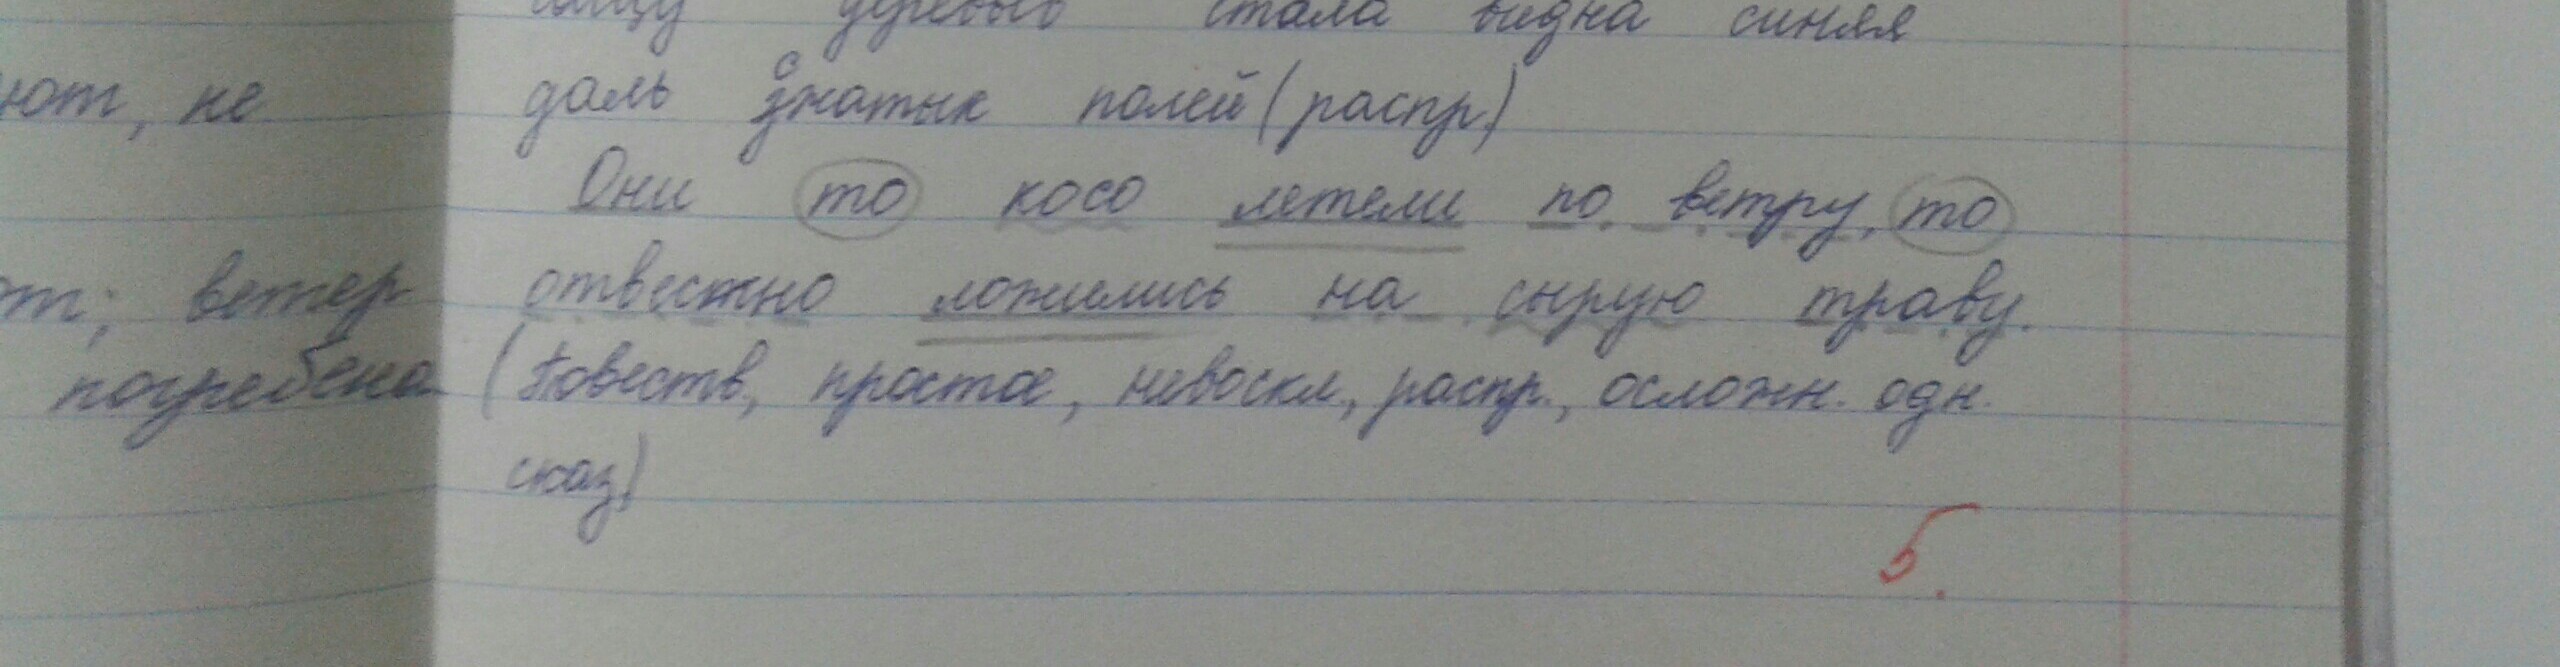 чащу деревьев стала видна синяя
ют, не
даль сжатых полей (распр.)
Они то косо летели по ветру, то
от; ветер
отвестно ложились на сырую траву.
погребена
(Повеств., простое, невоскл., распр., осложн. одн.
сказ)
5.